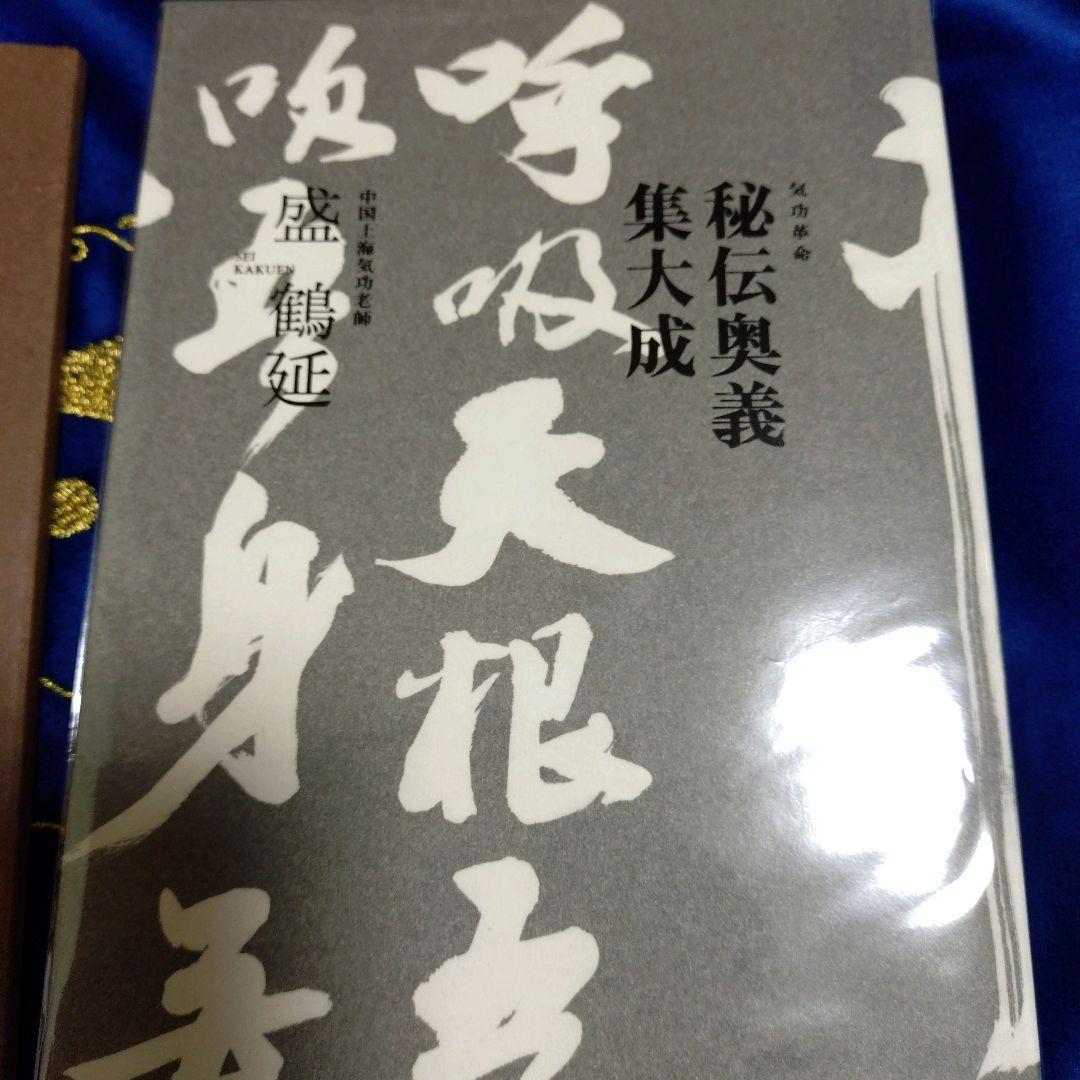 気功革命
秘伝奥義
集大成
中国上海気功老師
盛 鶴延
SEI
KAKUEN
呼吸天根
身